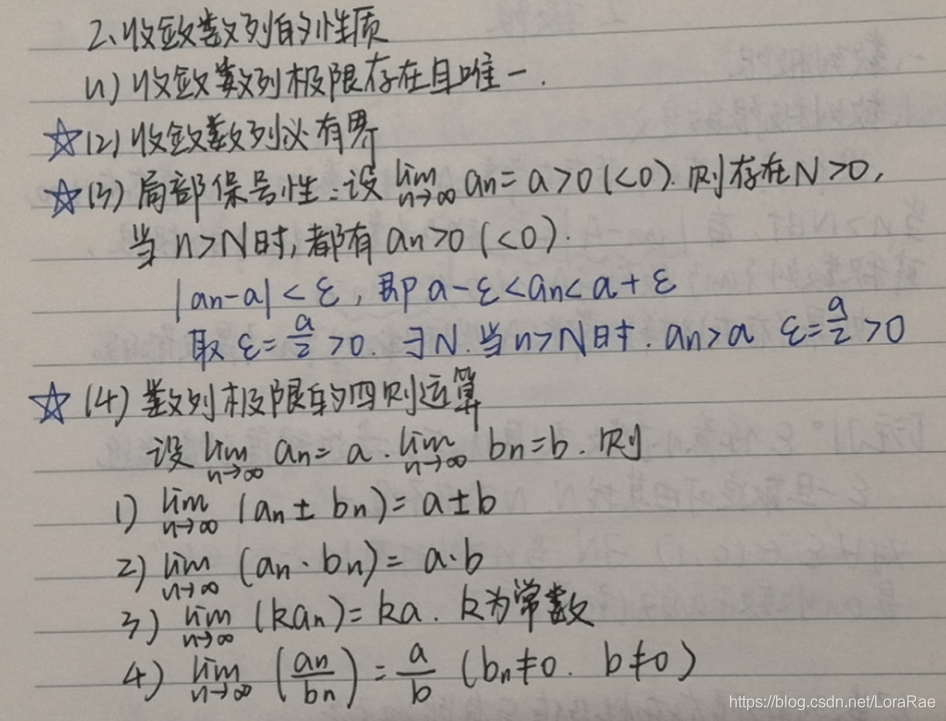 2、收敛数列的性质
(1) 收敛数列极限存在且唯一.
☆(2) 收敛数列必有界
☆(3) 局部保号性:设 lim n→∞ an = a>0 (<0). 则存在N>0,
当 n>N时,都有 an>0 (<0).
|an-a| < ε, 即 a-ε<an<a+ε
取 ε=a/2 >0. ∃N. 当n>N时. an>a ε=a/2>0
☆(4) 数列极限的四则运算
设 lim n→∞ an = a. lim n→∞ bn=b. 则
1) lim n→∞ (an ± bn) = a±b
2) lim n→∞ (an · bn) = a·b
3) lim n→∞ (kan) = ka. k为常数
4) lim n→∞ (an/bn) = a/b (bn≠0. b≠0)
https://blog.csdn.net/LoraRae